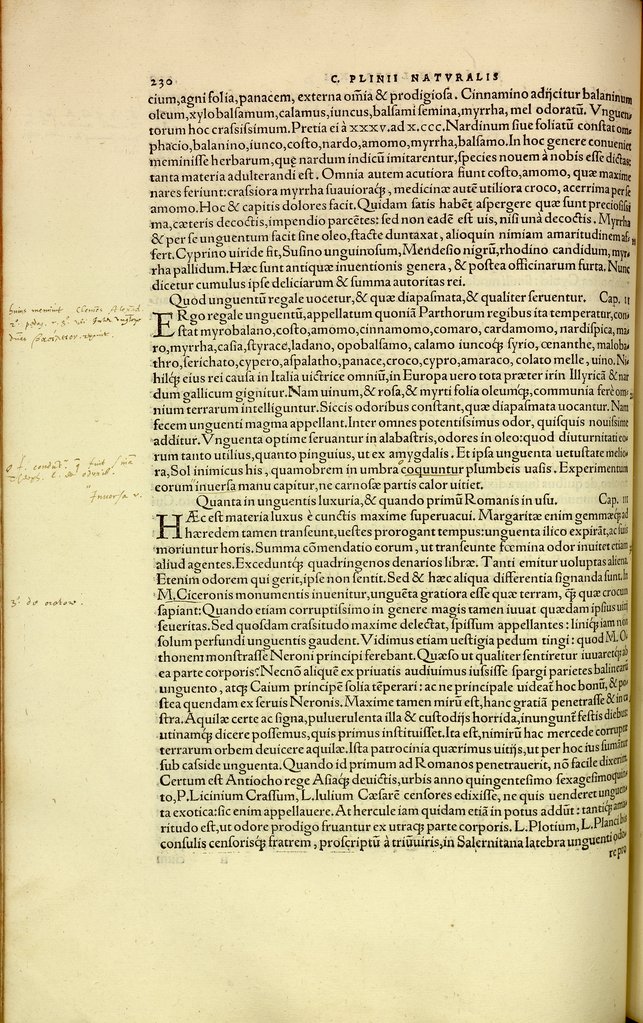 230 C. PLINII NATVRALIS
cium,agni folia, panacem, externa om̃ia & prodigiosa. Cinnamino adijcitur balaninum
oleum, xylobalsamum, calamus, iuncus, balsami semina, myrrha, mel odoratũ. Vnguen
torum hoc crassissimum. Pretia ei à xxxv. ad x.ccc. Nardinum siue foliatũ constat om
phacio, balanino, iunco, costo, nardo, amomo, myrrha, balsamo. In hoc genere conueniet
meminisse herbarum, quę nardum indicũ imitarentur, species nouem à nobis esse dictas:
tanta materia adulterandi est. Omnia autem acutiora fiunt costo, amomo, quæ maxime
nares feriunt: crassiora myrrha suauioraq;, medicinæ autẽ utiliora croco, acerrima per se
amomo. Hoc & capitis dolores facit. Quidam satis habẽt aspergere quæ sunt preciosissi
ma, cæteris decoctis, impendio parcẽtes: sed non eadẽ est uis, nisi unà decoctis. Myrrha
& per se unguentum facit sine oleo, stacte duntaxat, alioquin nimiam amaritudinem af
fert. Cyprino uiride fit, Susino unguinosum, Mendesio nigrũ, rhodino candidum, myr
rha pallidum. Hæc sunt antiquæ inuentionis genera, & postea officinarum furta. Nunc
dicetur cumulus ipse deliciarum & summa autoritas rei.
Quod unguentũ regale uocetur, & quæ diapasmata, & qualiter seruentur. Cap. II
ERgo regale unguentũ, appellatum quoniã Parthorum regibus ita temperatur, con
stat myrobalano, costo, amomo, cinnamomo, comaro, cardamomo, nardispica, ma
ro, myrrha, casia, styrace, ladano, opobalsamo, calamo iuncoq; syrio, œnanthe, maloba
thro, serichato, cypero, aspalatho, panace, croco, cypro, amaraco, colato melle, uino. Ni
hilq; eius rei causa in Italia uictrice omniũ, in Europa uero tota præter irin Illyricã & nar
dum gallicum gignitur. Nam uinum, & rosa, & myrti folia oleumq;, communia ferè om
nium terrarum intelliguntur. Siccis odoribus constant, quæ diapasmata uocantur. Nam
fecem unguenti magma appellant. Inter omnes potentissimus odor, quisquis nouissime
additur. Vnguenta optime seruantur in alabastris, odores in oleo: quod diuturnitati eo
rum tanto utilius, quanto pinguius, ut ex amygdalis. Et ipsa unguenta uetustate melio
ra, Sol inimicus his, quamobrem in umbra coquuntur plumbeis uasis. Experimentum
eorum inuersa manu capitur, ne carnosæ partis calor uitiet.
Quanta in unguentis luxuria, & quando primũ Romanis in usu. Cap. III
HÆc est materia luxus è cunctis maxime superuacui. Margaritæ enim gemmæq; ad
hæredem tamen transeunt, uestes prorogant tempus: unguenta ilico expirãt, ac suis
moriuntur horis. Summa cõmendatio eorum, ut transeunte fœmina odor inuitet etiam
aliud agentes. Exceduntq; quadringenos denarios libræ. Tanti emitur uoluptas aliena.
Etenim odorem qui gerit, ipse non sentit. Sed & hæc aliqua differentia signanda sunt. In
M. Ciceronis monumentis inuenitur, unguẽta gratiora esse quæ terram, q̃ quæ crocum
sapiant: Quando etiam corruptissimo in genere magis tamen iuuat quædam ipsius uitij
seueritas. Sed quosdam crassitudo maxime delectat, spissum appellantes: liniq; iam non
solum perfundi unguentis gaudent. Vidimus etiam uestigia pedum tingi: quod M. O
thonem monstrasse Neroni principi ferebant. Quæso ut qualiter sentiretur iuuaretq; ab
ea parte corporis? Necnõ aliquẽ ex priuatis audiuimus iussisse spargi parietes balinearũ
unguento, atq; Caium principẽ solia tẽperari: ac ne principale uideat̃ hoc bonũ, & po
stea quendam ex seruis Neronis. Maxime tamen mirũ est, hanc gratiã penetrasse & in ca
stra. Aquilæ certe ac signa, puluerulenta illa & custodijs horrida, inungunt̃ festis diebus:
utinamq; dicere possemus, quis primus instituisset. Ita est, nimirũ hac mercede corruptæ
terrarum orbem deuicere aquilæ. Ista patrocinia quærimus uitijs, ut per hoc ius sumãtur
sub casside unguenta. Quando id primum ad Romanos penetrauerit, nõ facile dixerim.
Certum est Antiocho rege Asiaq; deuictis, urbis anno quingentesimo sexagesimoquin
to, P. Licinium Crassum, L. Iulium Cæsarẽ censores edixisse, ne quis uenderet unguen
ta exotica: sic enim appellauere. At hercule iam quidam etiã in potus addũt: tantiq; ama
ritudo est, ut odore prodigo fruantur ex utraq; parte corporis. L. Plotium, L. Planci bis
consulis censorisq; fratrem, proscriptũ à triũuiris, in Salernitana latebra unguenti odor
re pro
Inuersa v.
3º. de oratore.